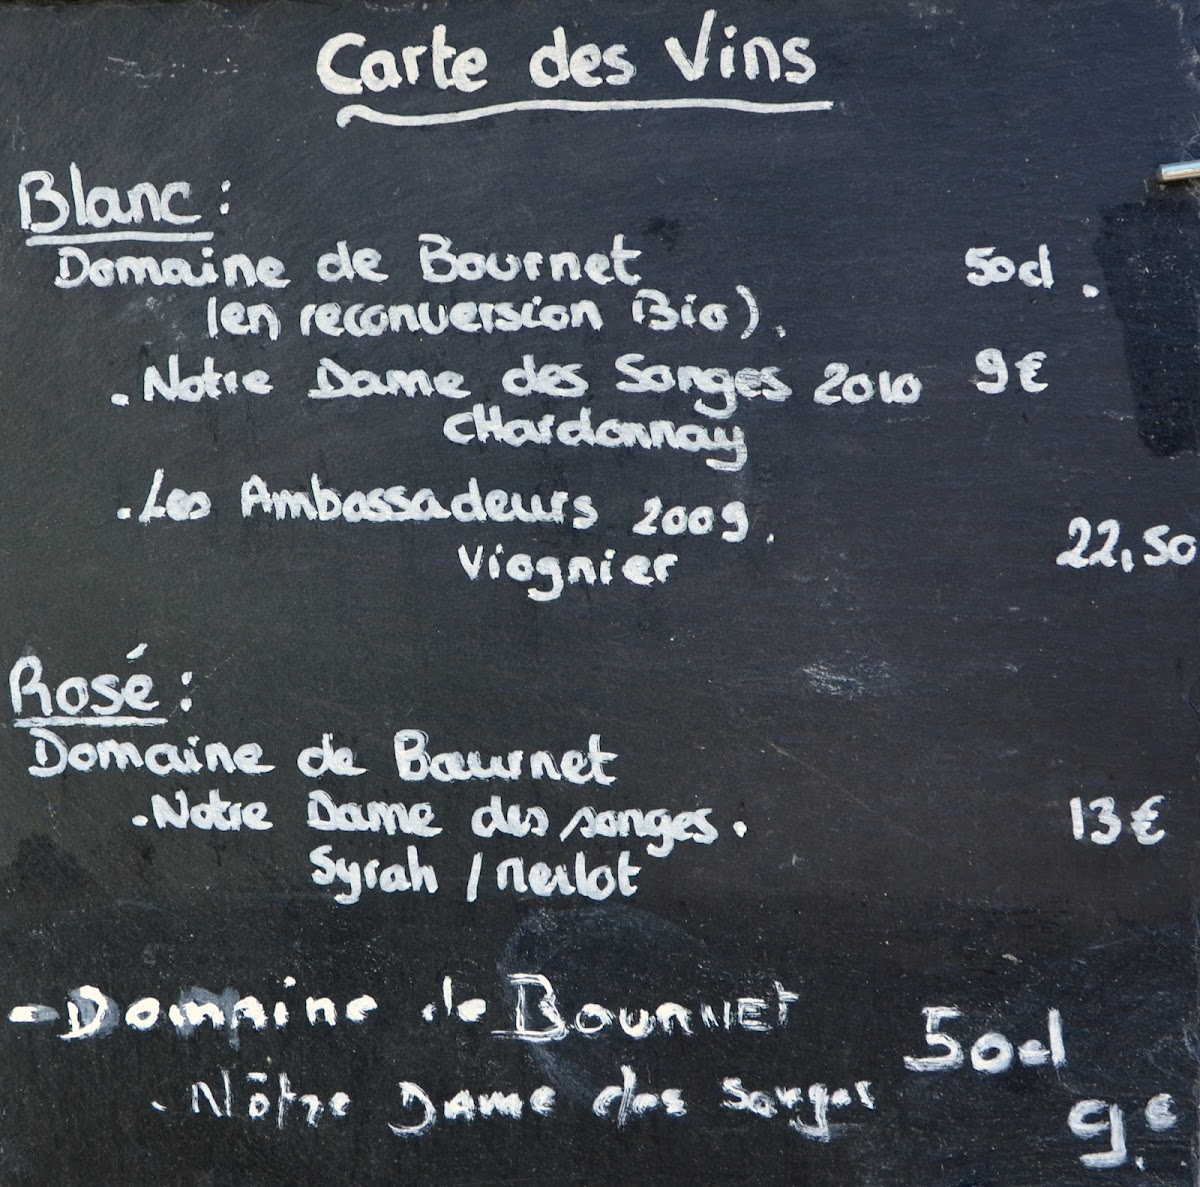 Carte des Vins
Blanc :
Domaine de Bournet 50cl .
(en reconversion Bio).
. Notre Dame des Songes 2010 9€
CHardonnay
. Les Ambassadeurs 2009.
Viognier 22,50
Rosé :
Domaine de Bournet
. Notre Dame des songes . 13€
Syrah / Merlot
- Domaine de BOURNET 50cl
. Nôtre Dame des Songes 9.€